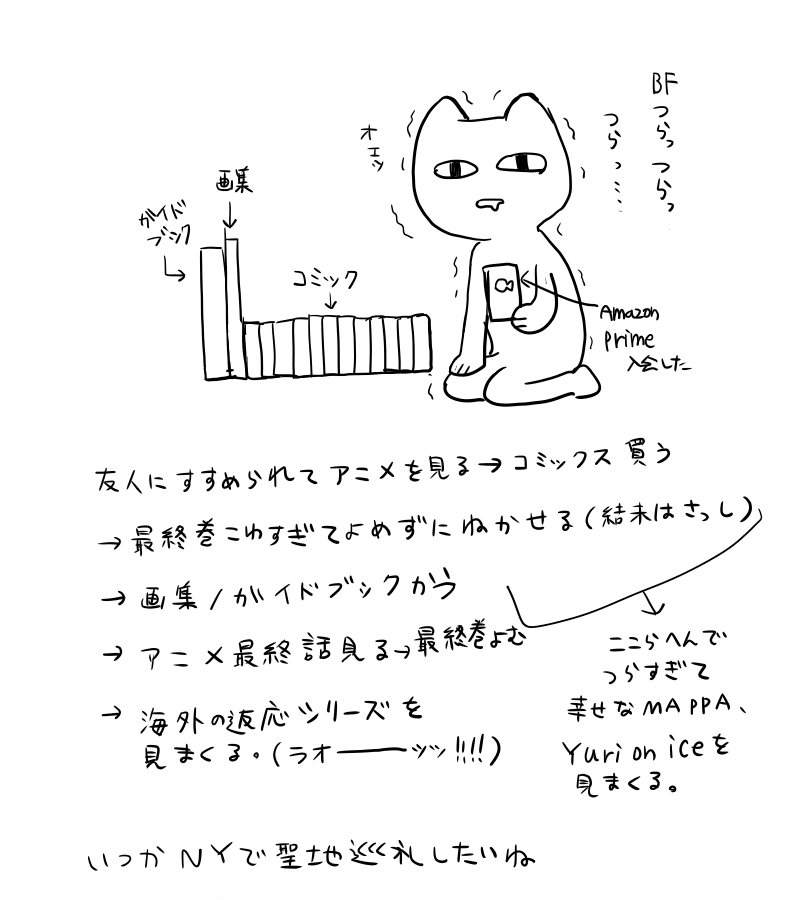 BF
つらっ つらっ
つらっ……
オエッ
画集
ガイド
ブック
コミック
Amazon
prime
入会した
友人にすすめられてアニメを見る→コミックス買う
→最終巻こわすぎてよめずにねかせる(結末はさっし)
→画集/ガイドブックかう
→アニメ最終話見る→最終巻よむ
→海外の返応シリーズを
見まくる。(ラオーーーッッ!!!!)
ここらへんで
つらすぎて
幸せなMAPPA、
Yuri on iceを
見まくる。
いつかNYで聖地巡礼したいね